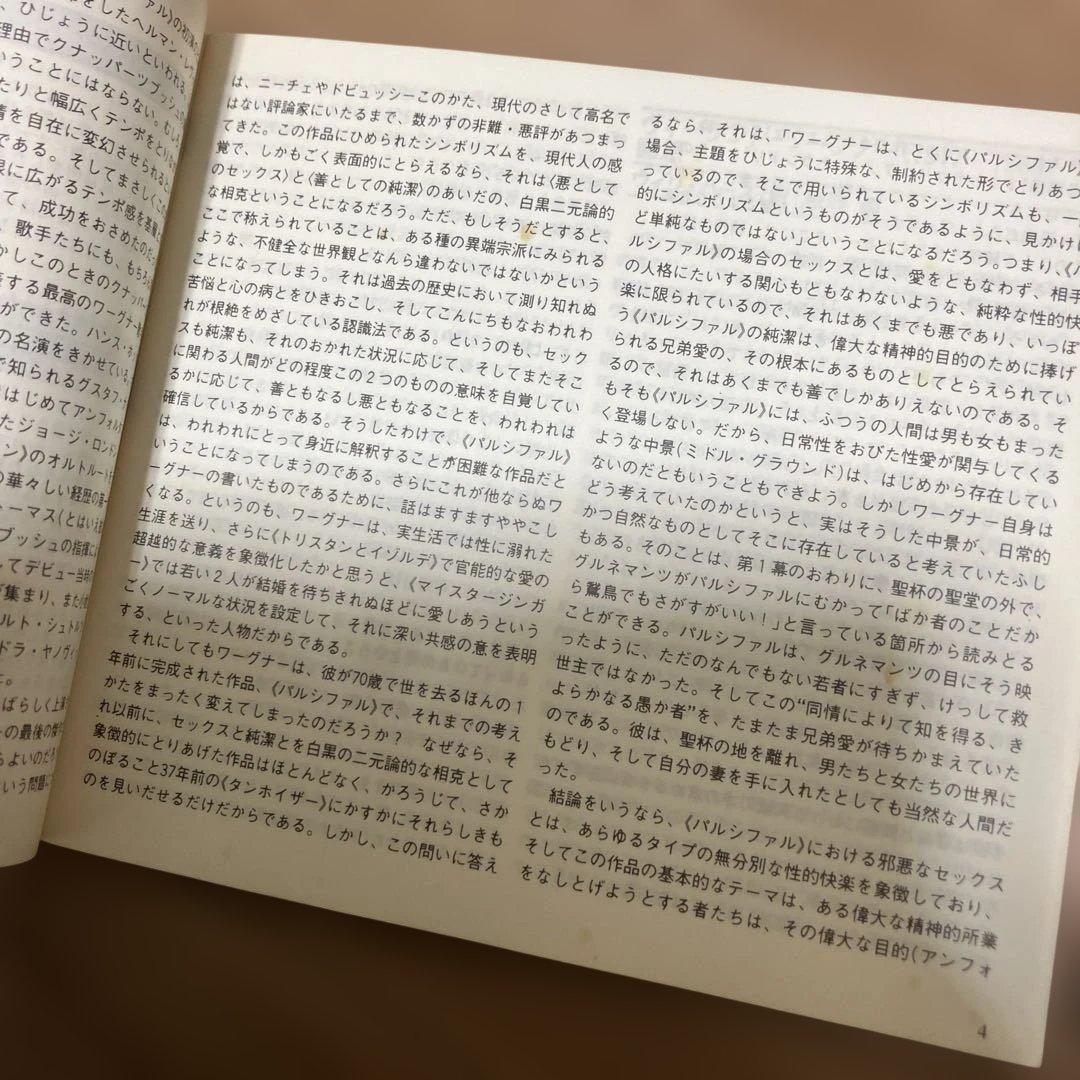 ファル》の初演の
をしたヘルマン・レヴ
、ひじょうに近いといわれる。
理由でクナッパーツブッシュの
いうことにはならない。むしろ
たりと幅広くテンポをとりな
情を自在に変幻させられると
である。そしてまさしくこの
限に広がるテンポ感を基盤に
て、成功をおさめたのだっ
、歌手たちにも、もちろ
かしこのときのクナッパー
表する最高のワーグナー歌
ができた。ハンス・ホッ
の名演をきかせている。
で知られるグスタフ・
はじめてアンフォルタ
たジョージ・ロンドン
ン》のオルトルート
の華々しい経歴の第一
ーマス(とはいえ
ブッシュの指揮に
してデビュー当時の
が集まり、また小
ルト・シュトル
ドラ・ヤノヴィ
た。
ばらしく上演
の最後の傑作
らよいのだろ
いう問題に
は、ニーチェやドビュッシーこのかた、現代のさして高名で
はない評論家にいたるまで、数かずの非難・悪評があつまっ
てきた。この作品にひめられたシンボリズムを、現代人の感
覚で、しかもごく表面的にとらえるなら、それは〈悪として
のセックス〉と〈善としての純潔〉のあいだの、白黒二元論的
な相克ということになるだろう。ただ、もしそうだとすると、
ここで称えられていることは、ある種の異端宗派にみられる
ような、不健全な世界観となんら違わないではないかという
ことになってしまう。それは過去の歴史において測り知れぬ
苦悩と心の病とをひきおこし、そしてこんにちもなおわれわ
れが根絶をめざしている認識法である。というのも、セック
スも純潔も、それのおかれた状況に応じて、そしてまたそこ
に関わる人間がどの程度この2つのものの意味を自覚してい
るかに応じて、善ともなるし悪ともなることを、われわれは
確信しているからである。そうしたわけで、《パルシファル》
は、われわれにとって身近に解釈することが困難な作品だと
いうことになってしまうのである。さらにこれが他ならぬワ
ーグナーの書いたものであるために、話はますますややこし
くなる。というのも、ワーグナーは、実生活では性に溺れた
生涯を送り、さらに《トリスタンとイゾルデ》で官能的な愛の
超越的な意義を象徴化したかと思うと、《マイスタージンガ
ー》では若い2人が結婚を待ちきれぬほどに愛しあうという
ごくノーマルな状況を設定して、それに深い共感の意を表明
する、といった人物だからである。
それにしてもワーグナーは、彼が70歳で世を去るほんの1
年前に完成された作品、《パルシファル》で、それまでの考え
かたをまったく変えてしまったのだろうか? なぜなら、そ
れ以前に、セックスと純潔とを白黒の二元論的な相克として
象徴的にとりあげた作品はほとんどなく、かろうじて、さか
のぼること37年前の《タンホイザー》にかすかにそれらしきも
のを見いだせるだけだからである。しかし、この問いに答え
るなら、それは、「ワーグナーは、とくに《パルシファル》
場合、主題をひじょうに特殊な、制約された形でとりあつ
っているので、そこで用いられているシンボリズムも、一
的にシンボリズムというものがそうであるように、見かけ
ど単純なものではない」ということになるだろう。つまり、《パ
ルシファル》の場合のセックスとは、愛をともなわず、相手
の人格にたいする関心もともなわないような、純粋な性的快
楽に限られているので、それはあくまでも悪であり、いっぽ
う《パルシファル》の純潔は、偉大な精神的目的のために捧げ
られる兄弟愛の、その根本にあるものとしてとらえられてい
るので、それはあくまでも善でしかありえないのである。そ
もそも《パルシファル》には、ふつうの人間は男も女もまった
く登場しない。だから、日常性をおびた性愛が関与してくる
ような中景(ミドル・グラウンド)は、はじめから存在してい
ないのだともいうこともできよう。しかしワーグナー自身は
どう考えていたのかというと、実はそうした中景が、日常的
かつ自然なものとしてそこに存在していると考えていたふし
もある。そのことは、第1幕のおわりに、聖杯の聖堂の外で、
グルネマンツがパルシファルにむかって「ばか者のことだか
ら鵞鳥でもさがすがいい!」と言っている箇所から読みとる
ことができる。パルシファルは、グルネマンツの目にそう映
ったように、ただのなんでもない若者にすぎず、けっして救
世主ではなかった。そしてこの“同情によりて知を得る、き
よらかなる愚か者”を、たまたま兄弟愛が待ちかまえていた
のである。彼は、聖杯の地を離れ、男たちと女たちの世界に
もどり、そして自分の妻を手に入れたとしても当然な人間だ
った。
結論をいうなら、《パルシファル》における邪悪なセックス
とは、あらゆるタイプの無分別な性的快楽を象徴しており、
そしてこの作品の基本的なテーマは、ある偉大な精神的所業
をなしとげようとする者たちは、その偉大な目的(アンフォ
4